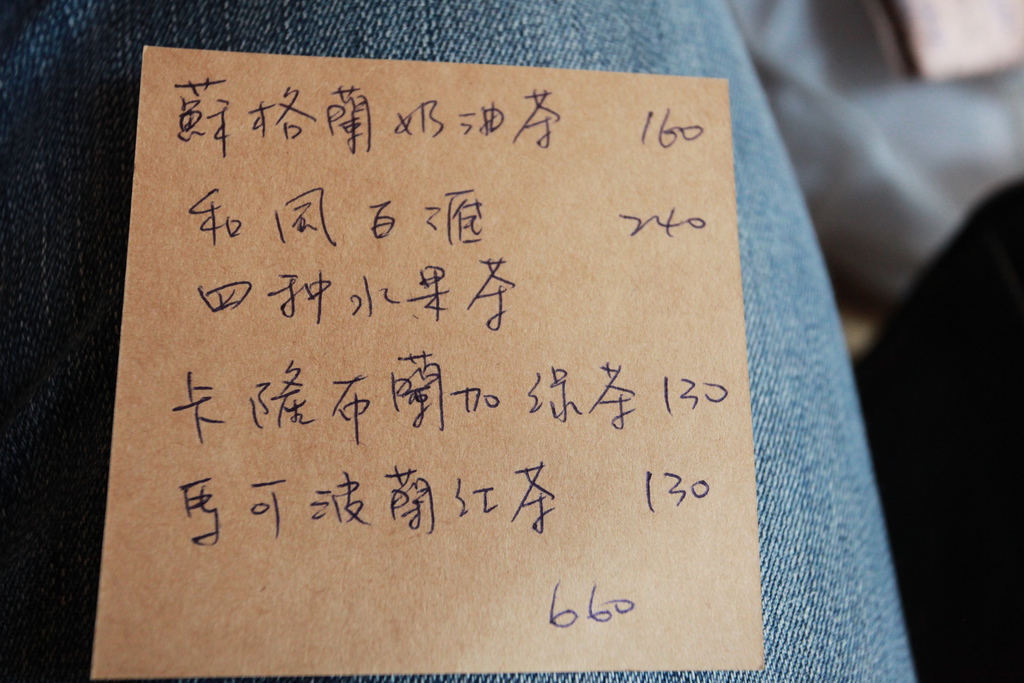 蘇格蘭奶油茶 160
和風百匯 240
四種水果茶
卡隆布蘭加綠茶 130
馬可波蘭紅茶 130
660